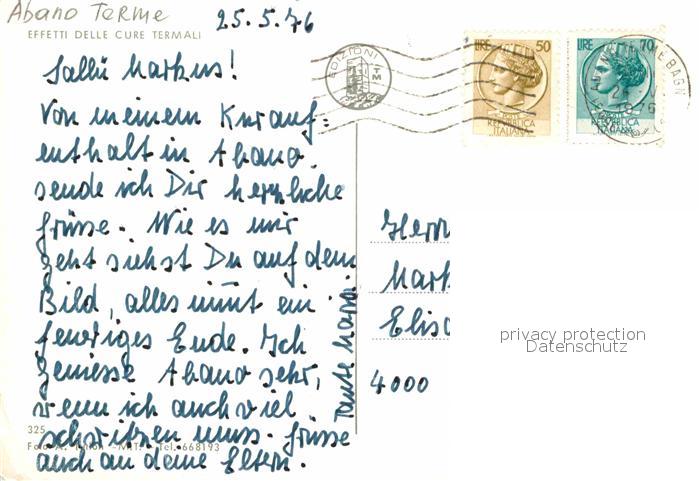 Abano Terme
25.5.76
EFFETTI DELLE CURE TERMALI
EDIZIONI
LIRE 50
LIRE 70
POSTE
REPUBBLICA
ITALIANA
POSTE
REPUBBLICA
ITALIANA
1976
Sallü Markus!
Von meinem Kurauf=
enthalt in Abano
sende ich Dir herzliche
Grüsse. Wie es mir
geht siehst Du auf dem
Bild, alles nimt ein
feuriges Ende. Ich
geniesse Abano sehr,
wenn ich auch viel
schwitzen muss. Grüsse
auch an deine Eltern.
Tante
Herr
Mark
Elisa
4000
privacy protection
Datenschutz
325
Tel. 668193